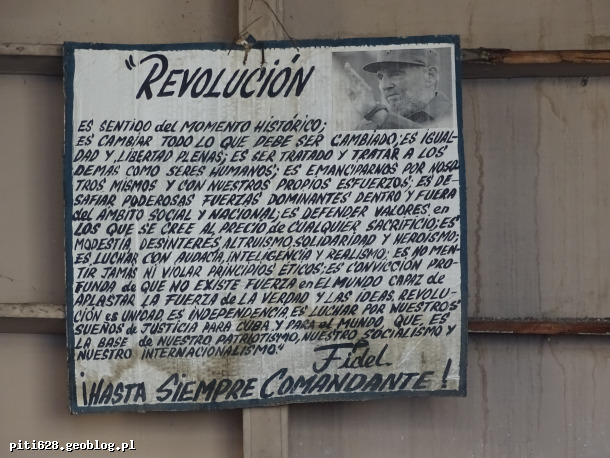 "REVOLUCIÓN
ES SENTIDO del MOMENTO HISTÓRICO;
ES CAMBIAR TODO LO QUE DEBE SER CAMBIADO; ES IGUAL-
DAD Y LIBERTAD PLENAS; ES SER TRATADO Y TRATAR A LOS
DEMAS COMO SERES HUMANOS; ES EMANCIPARNOS POR NOSO
TROS MISMOS Y CON NUESTROS PROPIOS ESFUERZOS; ES DE-
SAFIAR PODEROSAS FUERZAS DOMINANTES DENTRO Y FUERA
del ÁMBITO SOCIAL Y NACIONAL; ES DEFENDER VALORES en
LOS QUE SE CREE AL PRECIO de CUALQUIER SACRIFICIO; ES
MODESTIA DESINTERES, ALTRUISMO, SOLIDARIDAD Y HEROISMO;
ES LUCHAR CON AUDACIA, INTELIGENCIA Y REALISMO; ES NO MEN-
TIR JAMAS NI VIOLAR PRINCIPIOS ETICOS; ES CONVICCIÓN PRO-
FUNDA de QUE NO EXISTE FUERZA en EL MUNDO CAPAZ de
APLASTAR LA FUERZA de LA VERDAD Y LAS IDEAS. REVOLU-
CIÓN es UNIDAD, ES INDEPENDENCIA, ES LUCHAR POR NUESTROS
SUEÑOS de JUSTICIA PARA CUBA Y PARA el MUNDO QUE ES
LA BASE de NUESTRO PATRIOTISMO, NUESTRO SOCIALISMO Y
NUESTRO INTERNACIONALISMO."
Fidel
¡HASTA SIEMPRE COMANDANTE!
piti628.geoblog.pl